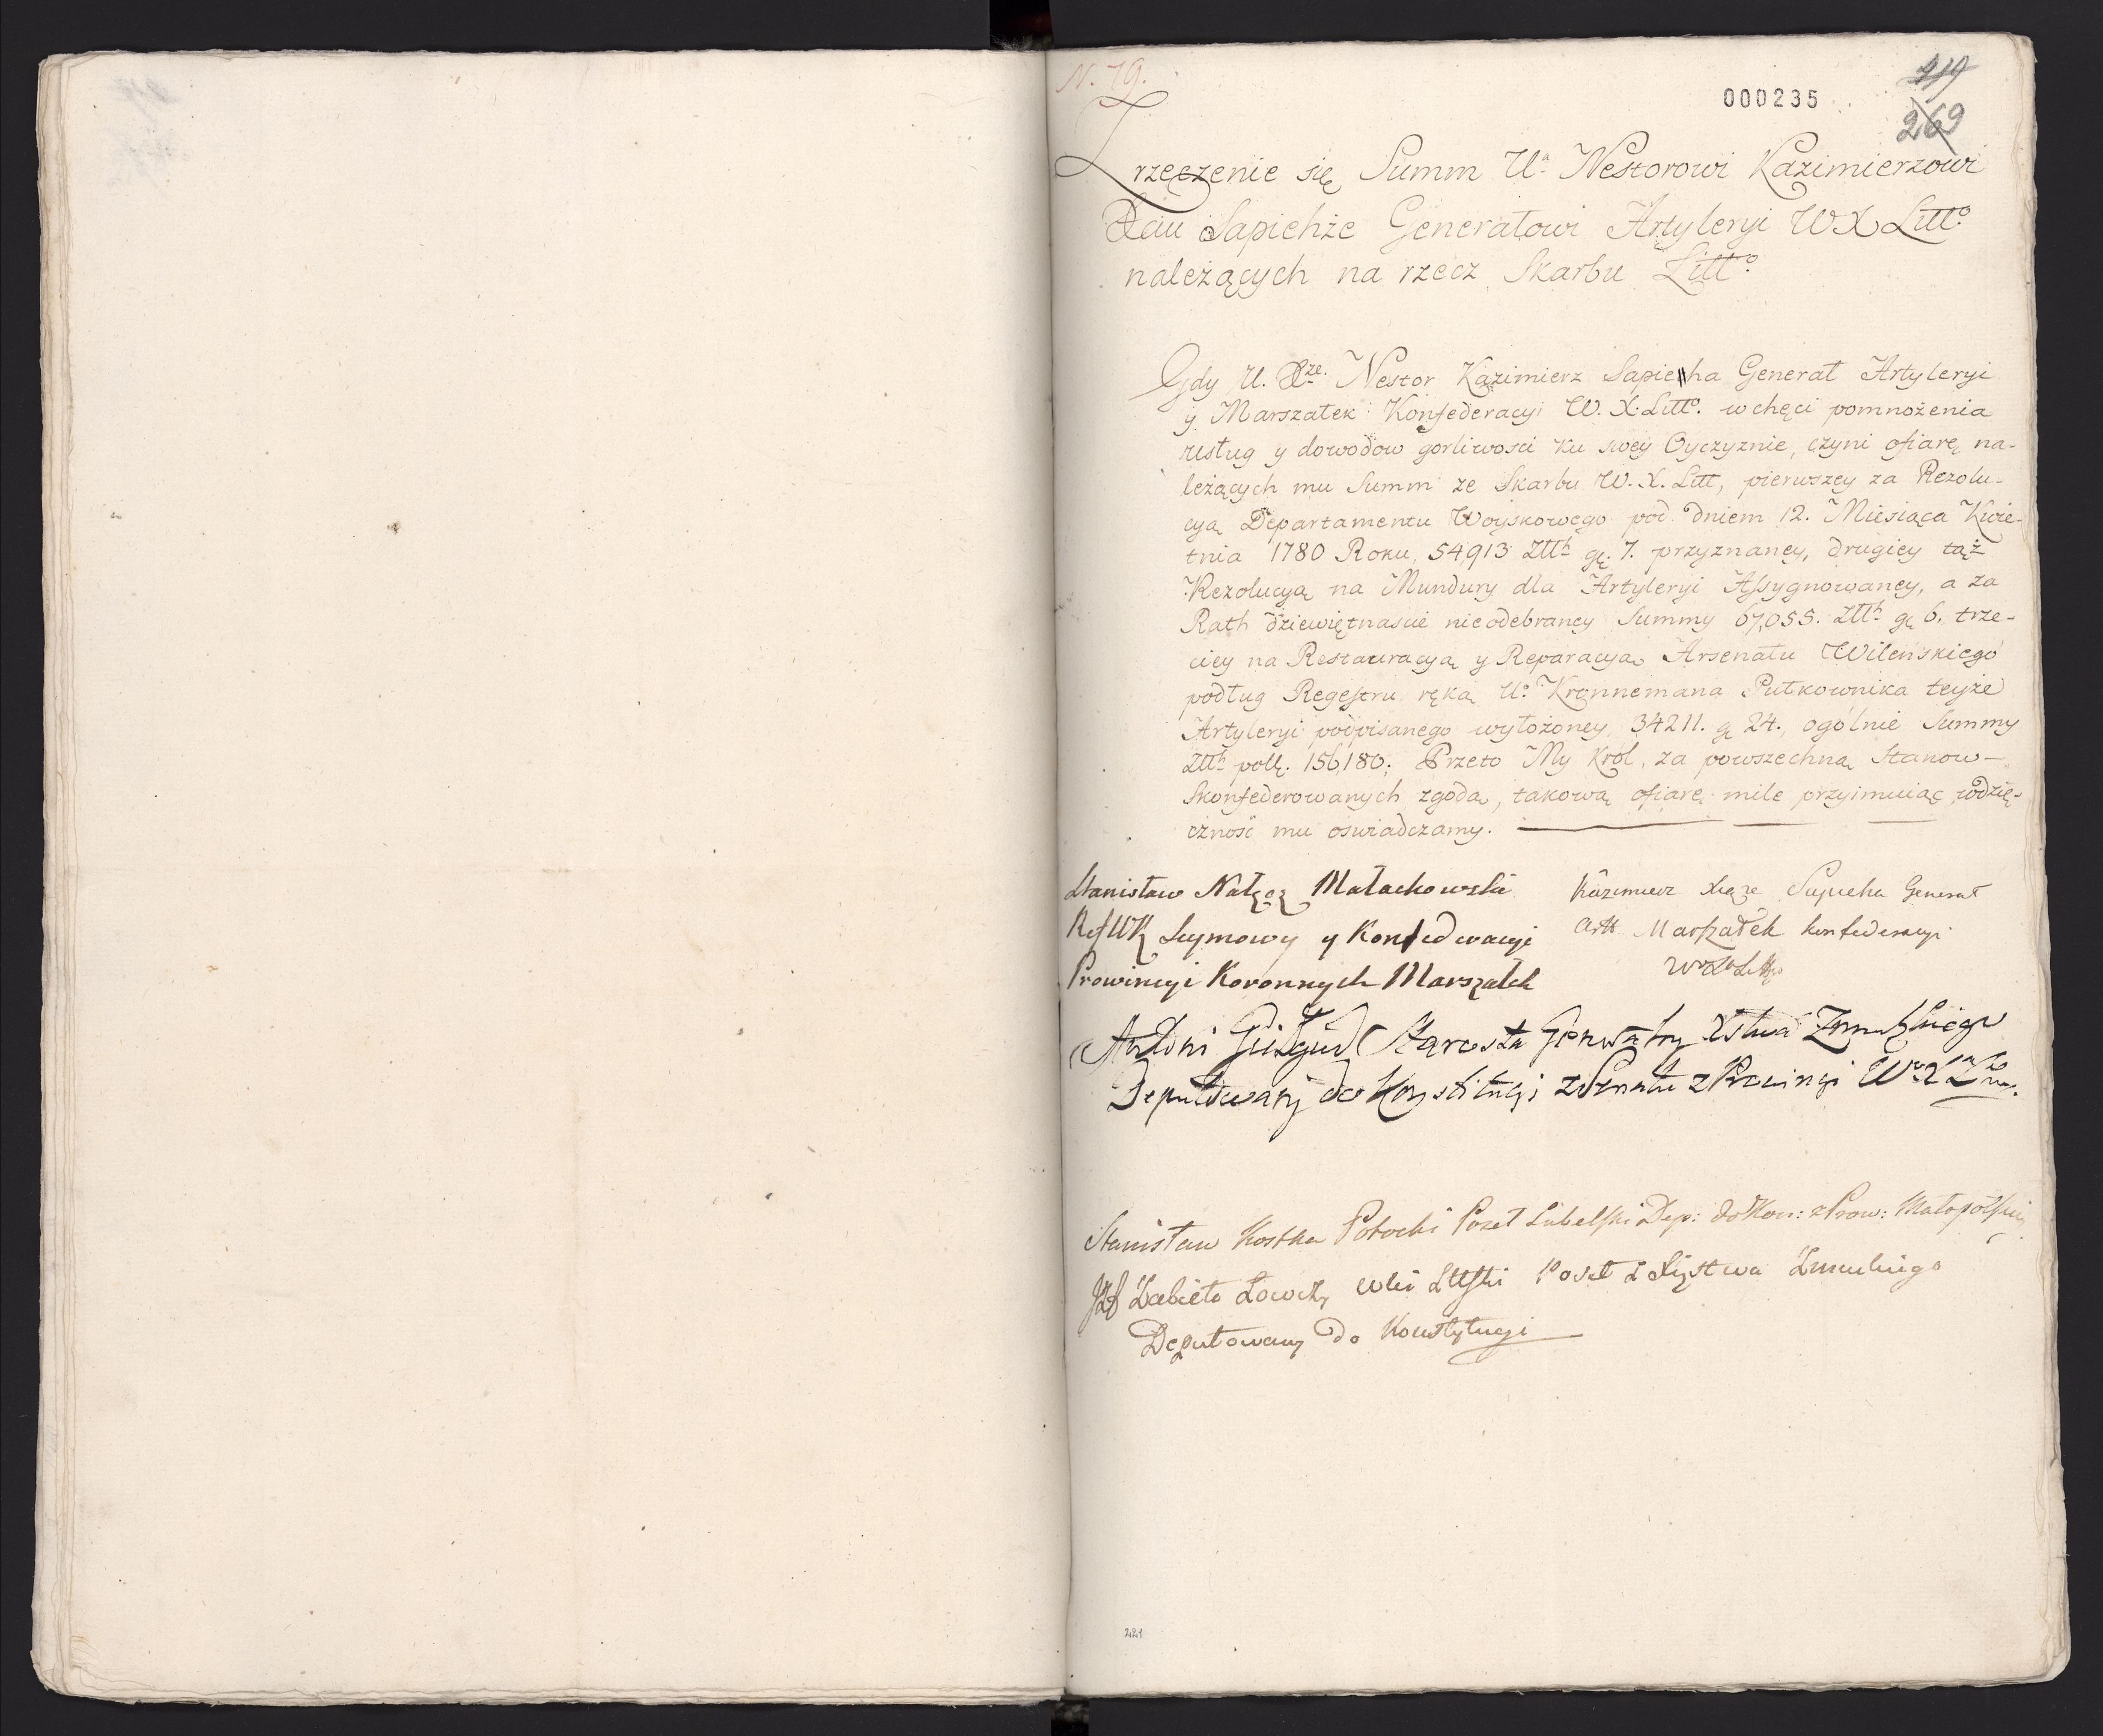 N. 79.
000235
219
269
Zrzeczenie się Summ Uᵃ Nestorowi Kazimierzowi
Xciu Sapieżże Generałowi Artyleryi W X Littº
należących na rzecz Skarbu Littº
Gdy U. Xże. Nestor Kazimierz Sapieha Generał Artyleryi
y Marszałek Konfederacyi W. X. Littº. w chęci pomnożenia
usług y dowodow gorliwosci ku swey Oyczyznie, czyni ofiarę na-
leżących mu Summ ze Skarbu W. X. Litt, pierwszey za Rezolu-
cyą Departamentu Woyskowego pod dniem 12. Miesiąca Kwie-
tnia 1780 Roku, 54913 Złłh gę. 7. przyznaney, drugiey taż
Rezolucyą na Mundury dla Artyleryi Assygnowaney, a za
Rath dziewiętnascie nieodebraney Summy 67,055. Złłh gę 6. trze-
ciey na Restauracyą y Reparacyą Arsenału Wileńskiego
podług Regestru ręką Uº Kronnemana Pułkownika teyże
Artyleryi podpisanego wyłożoney 34211. gę 24., ogólnie Summy
Złłh poll. 156,180; Przeto My Król, za powszechną Stanow
Skonfederowanych zgodą, takową ofiarę mile przyimuiąc, wdzię-
cznosc mu oswiadczamy.
Stanisław Nałęcz Małachowski
Ref WK Seymowy y Konfederacyi
Prowincyi Koronnych Marszałek
Kazimierz Xiąże Sapieha Generał
Artt Marszałek konfederacyi
W X Litt
Antoni Giełgud Starosta Generalny Xstwa Zmudzkiego
Deputowany do Konstitucyi z Senatu z Prowincyi W X Litt
Stanisław Kostka Potocki Poseł Lubelski Dep: do Kon: z Prow: Małopolskiej
Jzf Zabiełło Łowczy Wki Littski Poseł z Xięstwa Zmudzkiego
Deputowany do Konstytucyi
221